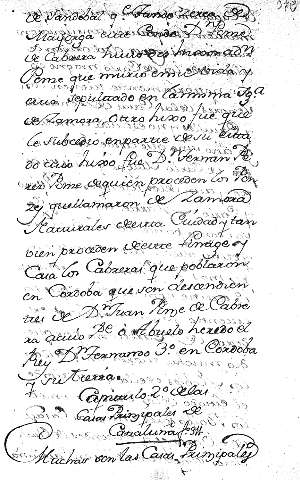 de Sandoval y
Mayorga este Conde Dn. Ponce
de Cabrera hubo dos hijos a Dn.
Ponce que murio en Sevilla y
está sepultado en la misma Yga
de Zamora otro hixo fue que
le subcedio en parte de su estado
otro hixo fue Dn. Fernan Pe
rez Ponze de quien proceden los Pon
zes que llamaron de Zamora
Naturales de esta Ciudad y tan
vien proceden de este Linage y
Casa los Cabreras que poblaron
en Cordoba que son descendien
tes de Dn. Juan Ponze de Cabre
ra a quien el Abuelo heredo el
Rey Dn. Fernando 3º en Cordoba
y su tierra.
Capitulo 2º de las
Casas Principales de
Muchas son las Casas Principales